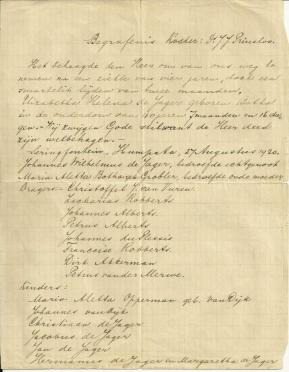 Begrafenis Koster: Dr. J J Prinsloo.
Het behaagden den Heer om van ons weg te
nemen na een ziekte van vier jaren, door een
smartelik lijden van twee maanden,
Elizabetha Helena de Jager geboren Botha
in de ouderdom van jaren 7 maanden en 16 da-
gen.- Wij zwijgen Gode stil want de Heer deed
zijn welbehagen.-
Leringfontein, Humpata, 27 Augustus 1920.
Johannes Wilhelmus de Jager, bedroefde echtgenoot
Maria Aletta Botha geb. Grobler, bedroefde oude moeder
Dragers:- Christoffel J. van Vuren.
Zacharias Robberts
Johannes Alberts.
Petrus Alberts
Johannes du Plessis
Francois Robberts
Dirk Akkerman
Petrus van der Merwe.
Kinders:
Maria Aletta Opperman geb. van Dijk
Johannes van Dijk
Christiaan de Jager
Jacobus de Jager
Jan de Jager
Hermanus de Jager en Margaretha de Jager